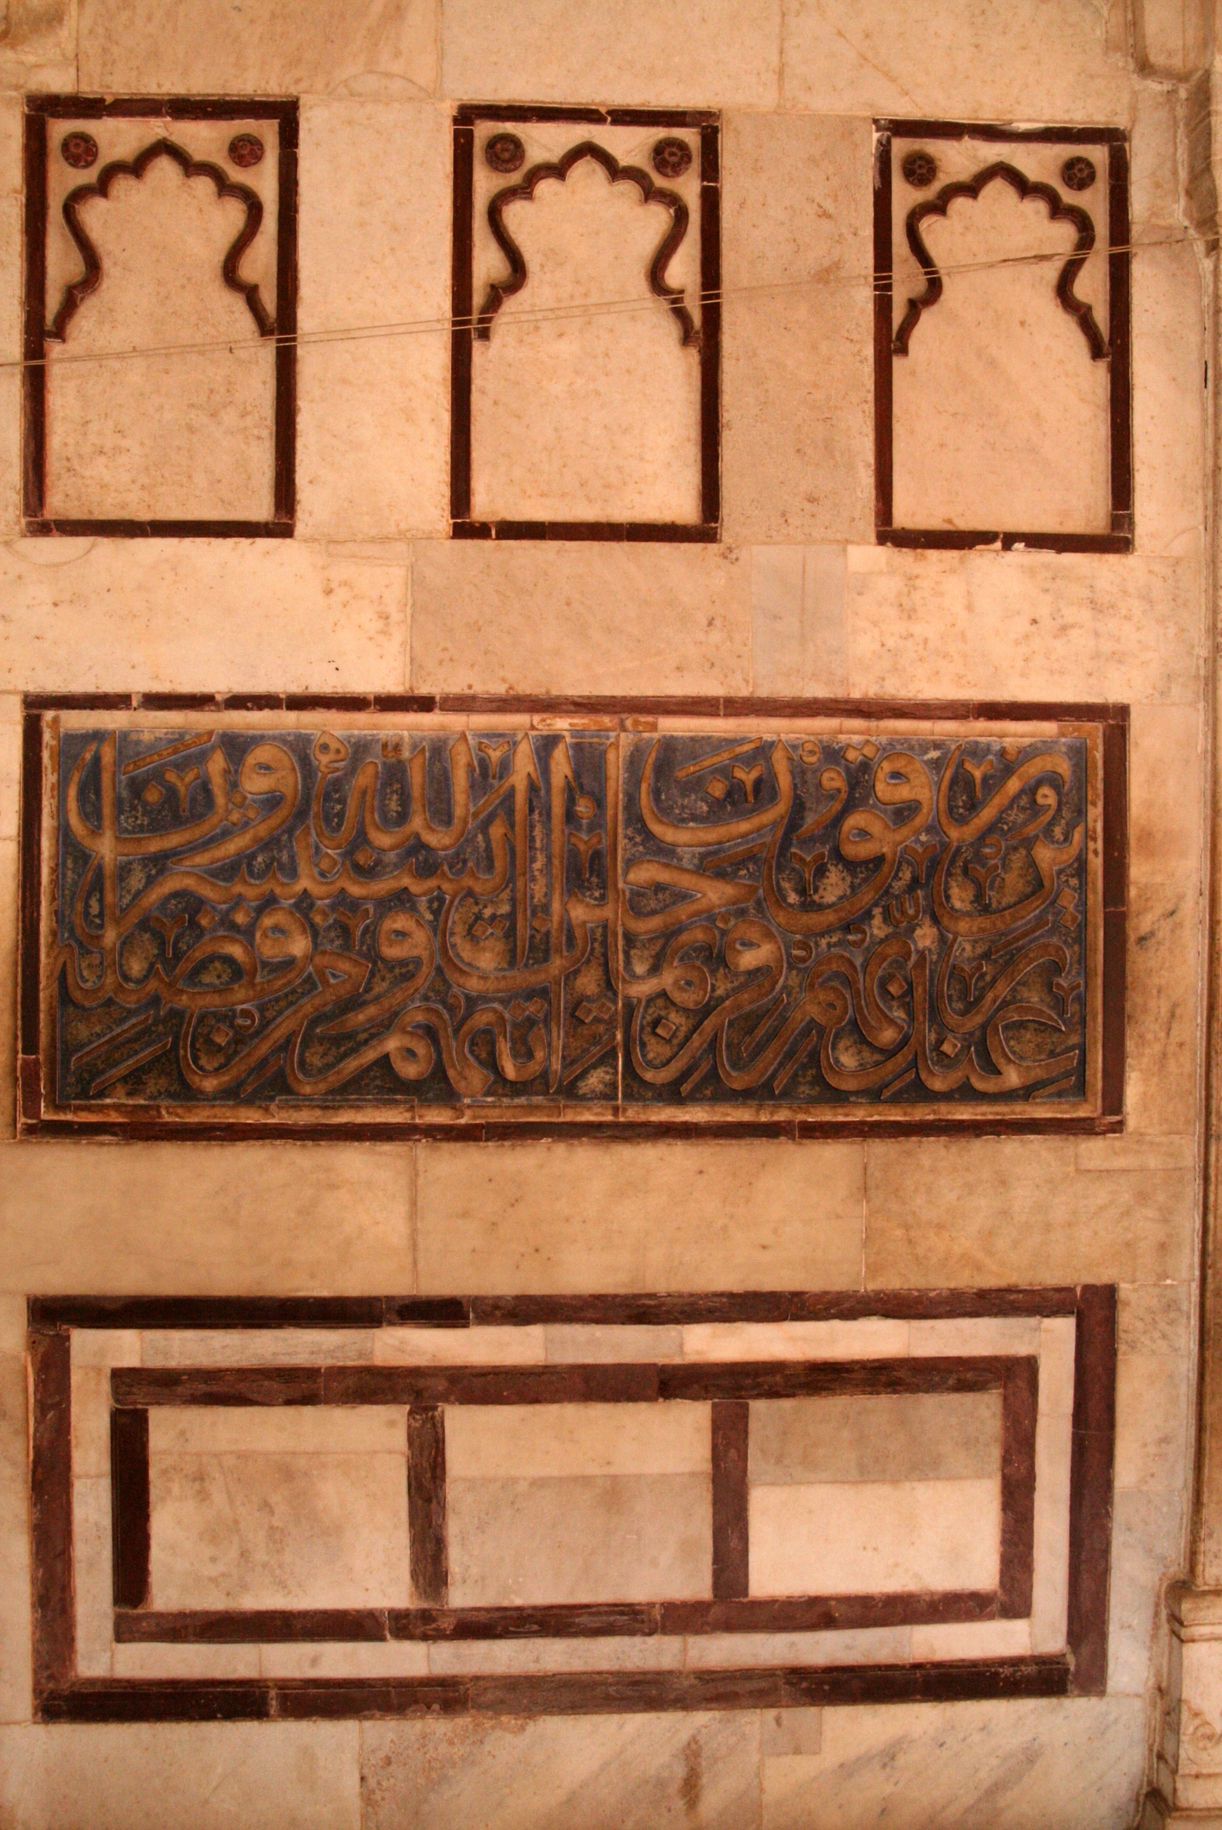 عند ربهم يرزقون فرحين بما اتهم الله من فضله ويستبشرون